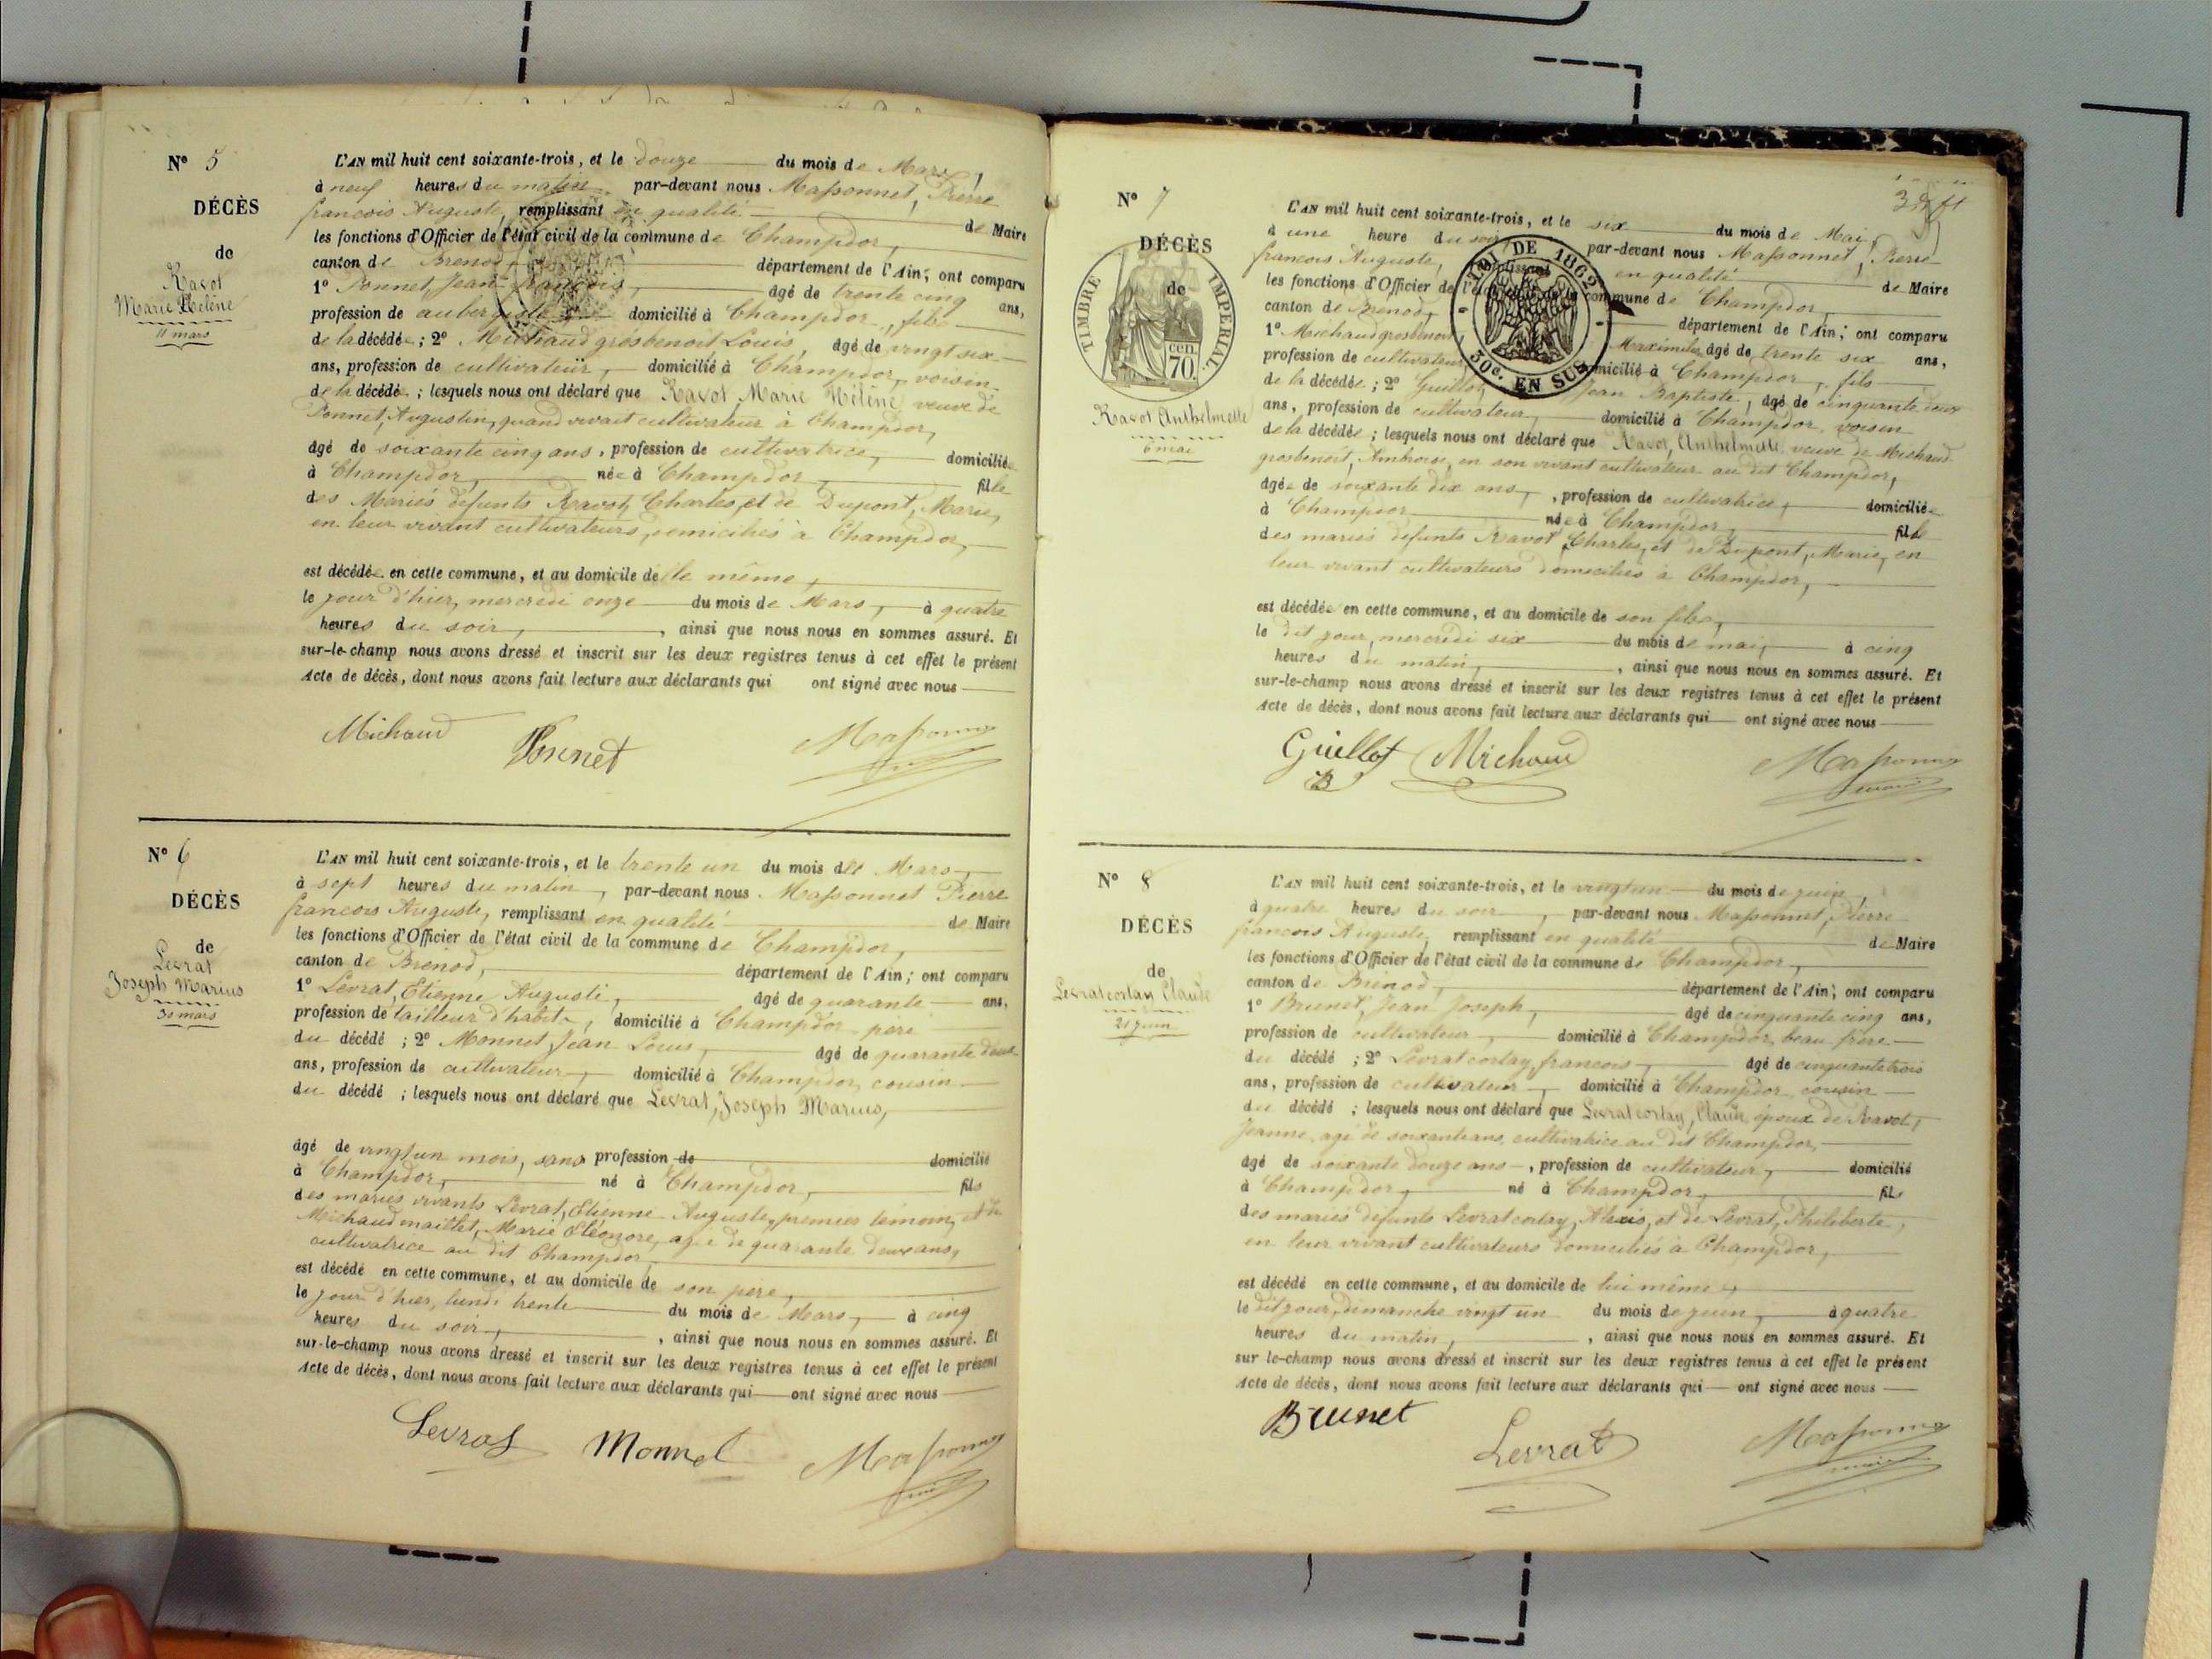 N° 5
DÉCÈS
de
Ravot
Marie Hélène
11 mars
L'AN mil huit cent soixante-trois, et le douze du mois de Mars,
à neuf heures du matin par-devant nous Massonnet, Pierre
francois Auguste, remplissant en qualité de Maire
les fonctions d'Officier de l'état civil de la commune de Champdor,
canton de Brenod, département de l'Ain; ont comparu
1° Ponnet, Jean francois, âgé de trente cinq ans,
profession de aubergiste domicilié à Champdor, fils
de la décédée; 2° Michaudgrosbenoit Louis, âgé de vingt six
ans, profession de cultivateur, domicilié à Champdor, voisin
de la décédée; lesquels nous ont déclaré que Ravot Marie Hélène veuve de
Ponnet, Augustin, quand vivait cultivateur à Champdor,
âgé de soixante cinq ans, profession de cultivatrice, domiciliée
à Champdor, née à Champdor, fille
des Mariés défunts Ravot, Charles, et de Dupont, Marie,
en leur vivant cultivateurs, domiciliés à Champdor,
est décédée en cette commune, et au domicile de elle même,
le jour d'hier, mercredi onze du mois de Mars, à quatre
heures du soir, ainsi que nous nous en sommes assuré. Et
sur-le-champ nous avons dressé et inscrit sur les deux registres tenus à cet effet le présent
Acte de décès, dont nous avons fait lecture aux déclarants qui ont signé avec nous
Michaud Ponnet Massonnet
N° 6
DÉCÈS
de
Levrat
Joseph Marius
30 mars
L'AN mil huit cent soixante-trois, et le trente un du mois de Mars,
à sept heures du matin, par-devant nous Massonnet Pierre
francois Auguste, remplissant en qualité de Maire
les fonctions d'Officier de l'état civil de la commune de Champdor,
canton de Brenod, département de l'Ain; ont comparu
1° Levrat, Etienne Auguste, âgé de quarante ans,
profession de tailleur d'habits, domicilié à Champdor père
du décédé; 2° Monnet, Jean Louis, âgé de quarante deux
ans, profession de cultivateur, domicilié à Champdor, cousin
du décédé; lesquels nous ont déclaré que Levrat, Joseph Marius,
âgé de vingt un mois, sans profession de domicilié
à Champdor, né à Champdor, fils
des mariés vivants Levrat, Etienne Auguste, premier témoin, et de
Michaudmaillet, Marie Eléonore, agée de quarante deux ans,
cultivatrice au dit Champdor
est décédé en cette commune, et au domicile de son père,
le jour d'hier, lundi trente du mois de Mars, à cinq
heures du soir, ainsi que nous nous en sommes assuré. Et
sur-le-champ nous avons dressé et inscrit sur les deux registres tenus à cet effet le présent
Acte de décès, dont nous avons fait lecture aux déclarants qui ont signé avec nous
Levrat Monnet Massonnet
N° 7
DÉCÈS
de
TIMBRE IMPÉRIAL
70 cen.
Ravot Anthelmette
6 mai
LOI DE 1862
30c. EN SUS
L'AN mil huit cent soixante-trois, et le six du mois de Mai,
à une heure du soir par-devant nous Massonnet, Pierre
francois Auguste, remplissant en qualité de Maire
les fonctions d'Officier de l'état civil de la commune de Champdor,
canton de Brenod, département de l'Ain; ont comparu
1° Michaudgrosbenoit, Maximilien, âgé de trente six ans,
profession de cultivateur, domicilié à Champdor, fils
de la décédée; 2° Guillot, Jean Baptiste, âgé de cinquante deux
ans, profession de cultivateur, domicilié à Champdor, voisin
de la décédée; lesquels nous ont déclaré que Ravot, Anthelmette veuve de Michaud
grosbenoit, Ambroise, en son vivant cultivateur au dit Champdor,
âgée de soixante dix ans, profession de cultivatrice, domiciliée
à Champdor née à Champdor, fille
des mariés défunts Ravot Charles, et de Dupont, Marie, en
leur vivant cultivateurs domiciliés à Champdor,
est décédée en cette commune, et au domicile de son fils,
le dit jour, mercredi six du mois de mai, à cinq
heures du matin, ainsi que nous nous en sommes assuré. Et
sur-le-champ nous avons dressé et inscrit sur les deux registres tenus à cet effet le présent
Acte de décès, dont nous avons fait lecture aux déclarants qui ont signé avec nous
Guillot Michaud Massonnet
B
N° 8
DÉCÈS
de
Levratcorlay Claude
21 juin
L'AN mil huit cent soixante-trois, et le vingt un du mois de juin,
à quatre heures du soir, par-devant nous Massonnet, Pierre
francois Auguste, remplissant en qualité de Maire
les fonctions d'Officier de l'état civil de la commune de Champdor,
canton de Brenod, département de l'Ain; ont comparu
1° Brunet, Jean Joseph, âgé de cinquante cinq ans,
profession de cultivateur, domicilié à Champdor, beau frère
du décédé; 2° Levratcorlay, francois, âgé de cinquante trois
ans, profession de cultivateur, domicilié à Champdor, cousin
du décédé; lesquels nous ont déclaré que Levratcorlay, Claude, époux de Ravot,
Jeanne, agé de soixante ans, cultivatrice au dit Champdor,
âgé de soixante douze ans, profession de cultivateur, domicilié
à Champdor, né à Champdor, fils
des mariés défunts Levratcorlay, Alexis, et de Levrat, Philiberte,
en leur vivant cultivateurs domiciliés à Champdor,
est décédé en cette commune, et au domicile de lui même,
le dit jour, dimanche vingt un du mois de juin, à quatre
heures du matin, ainsi que nous nous en sommes assuré. Et
sur-le-champ nous avons dressé et inscrit sur les deux registres tenus à cet effet le présent
Acte de décès, dont nous avons fait lecture aux déclarants qui ont signé avec nous
Brunet Levrat Massonnet